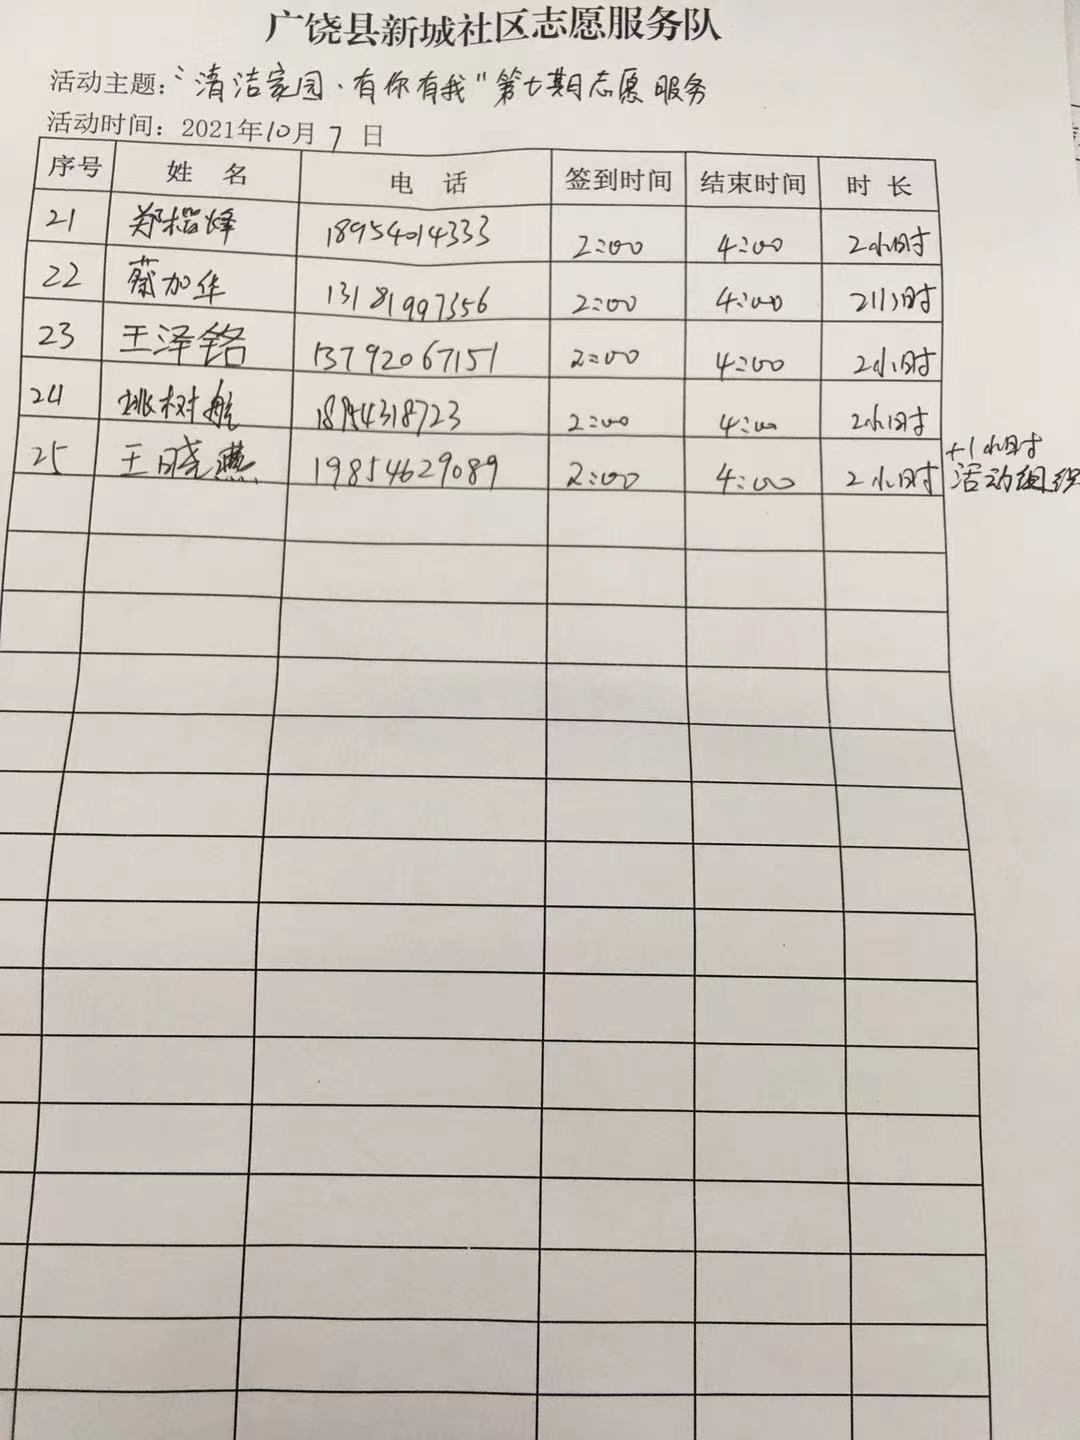 广饶县新城社区志愿服务队
活动主题：“清洁家园·有你有我”第七期志愿服务
活动时间：2021年10月7日
序号 姓名 电话 签到时间 结束时间 时长
21 郑 18954014333 2:00 4:00 2小时
22 蔡加华 13181997356 2:00 4:00 2小时
23 王泽铭 13792067151 2:00 4:00 2小时
24 姚树航 18954318723 2:00 4:00 2小时
+1小时
25 王晓燕 19854629089 2:00 4:00 2小时 活动组织